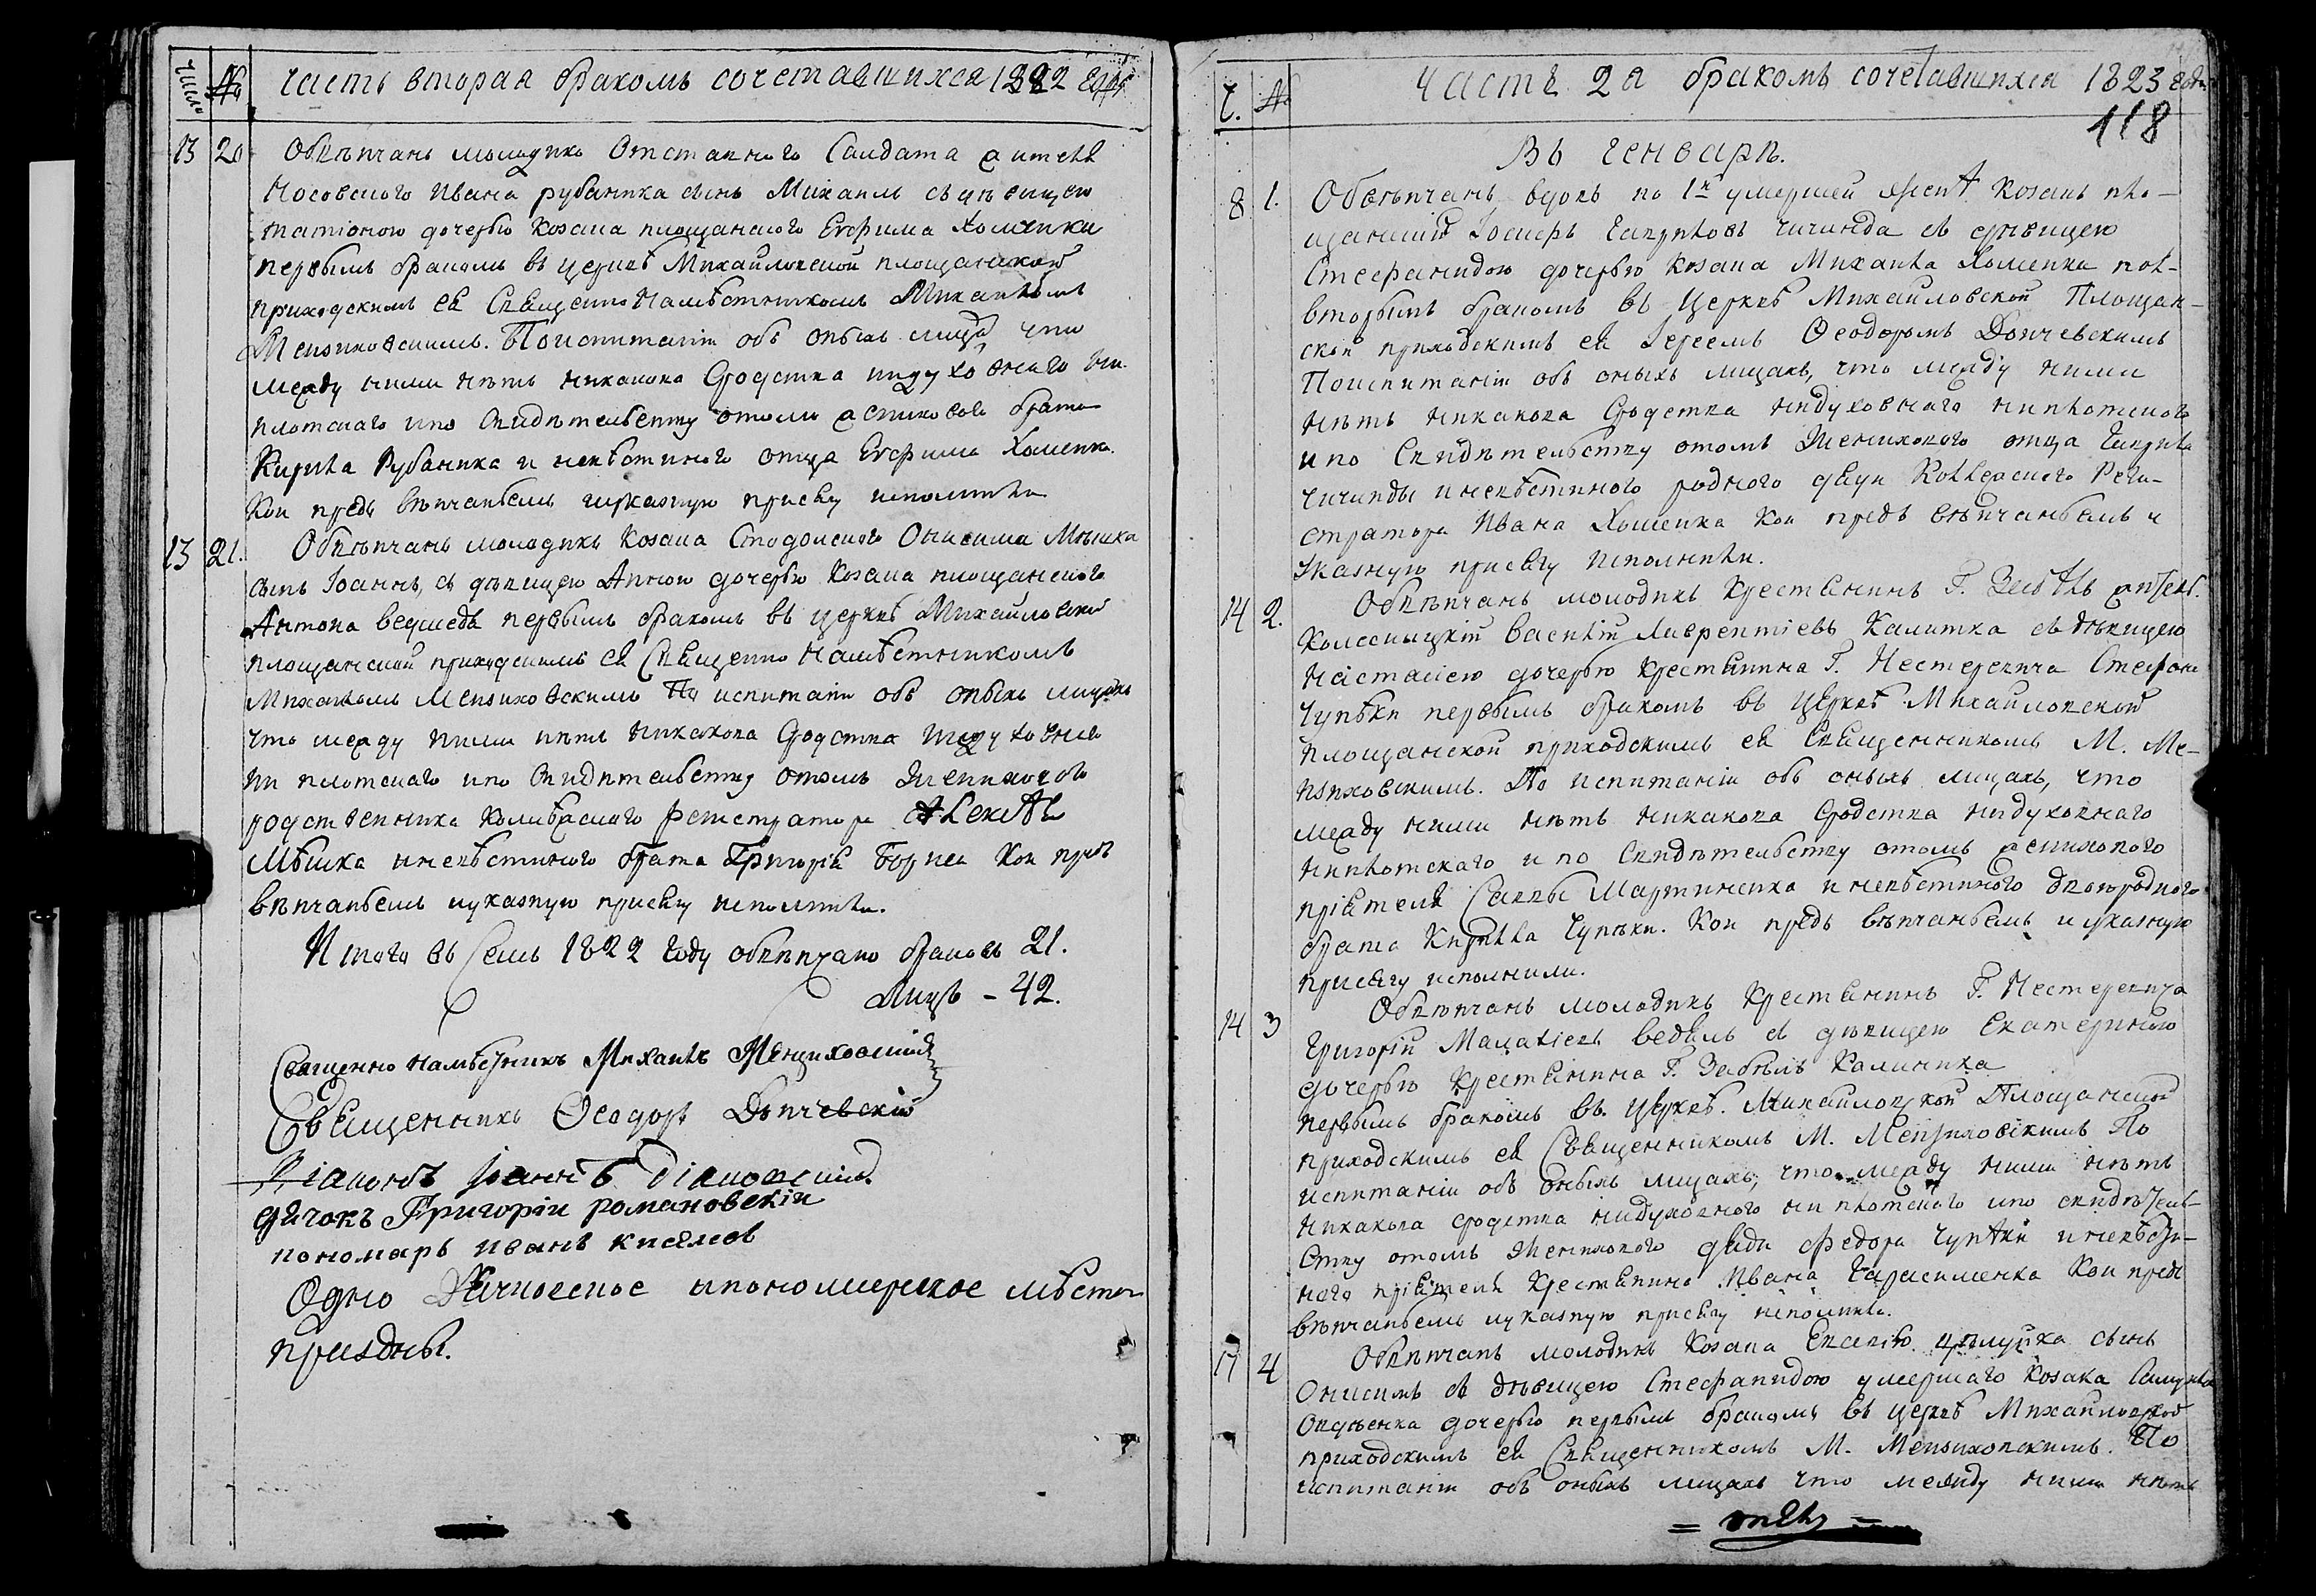 Число
№
Часть вторая бракомъ сочетавшихся 1822 года
13 20 Обвѣнчанъ молодикъ Отставного Салдата жителя
Носовского Ивана рубаника сынъ Михаилъ съ дѣвицею
дочерью козака площанского Евфима Хоменка
первымъ бракомъ въ церквѣ Михайловской площанской
приходскимъ ея Священно Намѣстникомъ Михаиломъ
Мензиховскимъ. По испитаніи объ оныхъ лицахъ что
между ними нѣтъ никакова Сродства нидуховнаго ни
плотскаго ипо Свидѣтельству отомъ женихового брата
Кирила Рубаника и невѣстиного отца Евфима Хоменка
Кои предъ вѣнчаніемъ иуказную присягу исполнили
13 21. Обвѣнчанъ молодикъ Козака Стодолского Онисима Мѣшка
сынъ Іоаннъ, съ дѣвицею Анною дочерью Козака площанского
Антона первымъ бракомъ въ церквѣ Михайловской
площанской приходскимъ ея Священно Намѣстникомъ
Михаиломъ Мензиховскимъ По испитаніи объ оныхъ лицахъ
что между ними нѣтъ никакова Сродства нидуховнаго
ни плотскаго ипо Свидѣтельству отомъ Женихового
родственника Регистратора Алексѣя
Мѣшка иневѣстиного брата Григорія Кои предъ
вѣнчаніемъ иуказную присягу исполнили.
Итого въ Семъ 1822 году обвѣнчано браковъ 21.
Лицъ - 42.
Священно намѣстникъ Михаилъ Менциховскій
Священникъ Ѳеодоръ Дончевскій
Діаконъ Іоаннъ Діаковскій
дячокъ Григорій романовскій
пономарь иванъ киселіов
Одно Дячковское ипономарское мѣста
праздны.
Ч. №
Часть 2я бракомъ сочетавшихся 1823 года
118
Въ генварѣ.
8 1. Обвѣнчанъ вдовъ по 1й умершей женѣ Козакъ пло-
щанскій Іосифъ Гавриловъ чичинда съ дѣвицею
Стефанидою дочерью козака Михаила Хоменка
вторымъ бракомъ въ Церквѣ Михайловской Площан-
ской приходскимъ ея Іереемъ Ѳеодоромъ Дончевскимъ
Поиспитаніи объ оныхъ лицахъ, что между ними
нѣтъ никакова Сродства нидуховнаго ниплотского
ипо Свидѣтельству отомъ Женихового отца Гаврила
чичинды иневѣстиного родного дяди Коллежского Реги-
стратора Ивана Хоменка Кои предъ вѣнчаніемъ и
указную присягу исполнили.
14 2. Обвѣнчанъ молодикъ Крестянинъ Г. жител.
Василій Лаврентіевъ Калитка съ дѣвицею
Настасіею дочерью Крестянина Г. Нестеревича Стефана
Чупѣки первымъ бракомъ въ Церквѣ Михайловской
площанской приходскимъ ея Священникомъ М. Ме-
нзиховскимъ. По испитаніи объ оныхъ лицахъ, что
между ними нѣтъ никакова Сродства нидуховнаго
ниплотскаго и по Свидѣтельству отомъ женихового
пріятеля Саввы Мартиненка иневѣстиного двоюродного
брата Кирилла Чупѣки. Кои предъ вѣнчаніемъ иуказную
присягу исполнили.
14 3 Обвѣнчанъ молодикъ Крестянинъ Г. Нестеревича
Григорій съ дѣвицею Екатериною
дочерью Крестянина Г. Забѣлѣ Калиника
первымъ бракомъ въ Церквѣ Михайловской Площанской
приходскимъ ея Священникомъ М. Мензиховскимъ По
испитаніи объ оныхъ лицахъ, что между ними нѣтъ
никакова сродства нидуховного ни плотского ипо свидѣтель-
ству отомъ Женихового дяди Федора Чупѣки иневѣсти-
ного пріятеля Крестянина Ивана Гарасименка Кои предъ
вѣнчаніемъ иуказную присягу исполнили.
17 4 Обвѣнчанъ молодикъ Козака сынъ
Онисимъ съ дѣвицею Стефанидою умершаго Козака Самуила
дочерью первымъ бракомъ въ церквѣ Михайловской
приходскимъ ея Священникомъ М. Мензиховскимъ. По
испитаніи объ оныхъ лицахъ что между ними нѣтъ